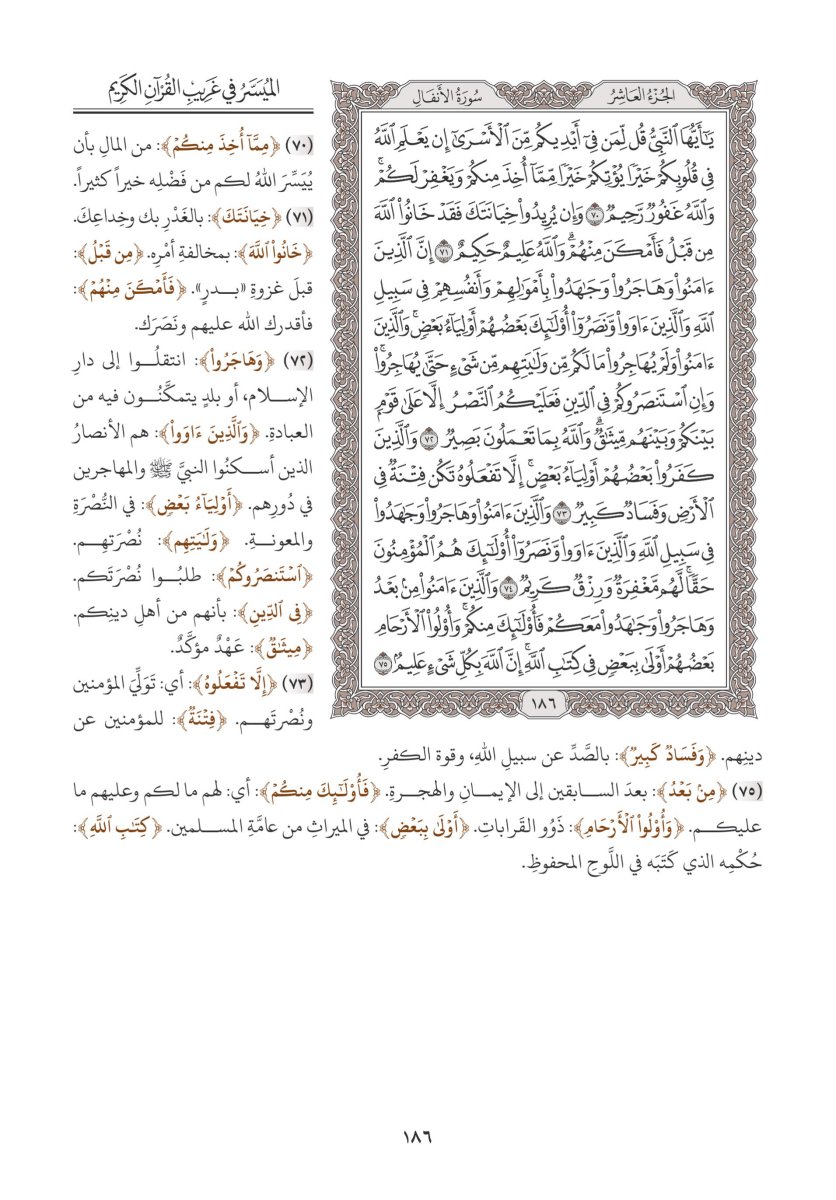 الجُزْءُ العَاشِرُ
سُورَةُ الأَنفَالِ
يَٰٓأَيُّهَا ٱلنَّبِيُّ قُل لِّمَن فِيٓ أَيۡدِيكُم مِّنَ ٱلۡأَسۡرَىٰٓ إِن يَعۡلَمِ ٱللَّهُ
فِي قُلُوبِكُمۡ خَيۡرٗا يُؤۡتِكُمۡ خَيۡرٗا مِّمَّآ أُخِذَ مِنكُمۡ وَيَغۡفِرۡ لَكُمۡۚ
وَٱللَّهُ غَفُورٞ رَّحِيمٞ ٧٠ وَإِن يُرِيدُواْ خِيَانَتَكَ فَقَدۡ خَانُواْ ٱللَّهَ
مِن قَبۡلُ فَأَمۡكَنَ مِنۡهُمۡۗ وَٱللَّهُ عَلِيمٌ حَكِيمٌ ٧١ إِنَّ ٱلَّذِينَ
ءَامَنُواْ وَهَاجَرُواْ وَجَٰهَدُواْ بِأَمۡوَٰلِهِمۡ وَأَنفُسِهِمۡ فِي سَبِيلِ
ٱللَّهِ وَٱلَّذِينَ ءَاوَواْ وَّنَصَرُوٓاْ أُوْلَٰٓئِكَ بَعۡضُهُمۡ أَوۡلِيَآءُ بَعۡضٖۚ وَٱلَّذِينَ
ءَامَنُواْ وَلَمۡ يُهَاجِرُواْ مَا لَكُم مِّن وَلَٰيَتِهِم مِّن شَيۡءٍ حَتَّىٰ يُهَاجِرُواْۚ
وَإِنِ ٱسۡتَنصَرُوكُمۡ فِي ٱلدِّينِ فَعَلَيۡكُمُ ٱلنَّصۡرُ إِلَّا عَلَىٰ قَوۡمِۭ
بَيۡنَكُمۡ وَبَيۡنَهُم مِّيثَٰقٞۗ وَٱللَّهُ بِمَا تَعۡمَلُونَ بَصِيرٞ ٧٢ وَٱلَّذِينَ
كَفَرُواْ بَعۡضُهُمۡ أَوۡلِيَآءُ بَعۡضٍۚ إِلَّا تَفۡعَلُوهُ تَكُن فِتۡنَةٞ فِي
ٱلۡأَرۡضِ وَفَسَادٞ كَبِيرٞ ٧٣ وَٱلَّذِينَ ءَامَنُواْ وَهَاجَرُواْ وَجَٰهَدُواْ
فِي سَبِيلِ ٱللَّهِ وَٱلَّذِينَ ءَاوَواْ وَّنَصَرُوٓاْ أُوْلَٰٓئِكَ هُمُ ٱلۡمُؤۡمِنُونَ
حَقّٗاۚ لَّهُم مَّغۡفِرَةٞ وَرِزۡقٞ كَرِيمٞ ٧٤ وَٱلَّذِينَ ءَامَنُواْ مِنۢ بَعۡدُ
وَهَاجَرُواْ وَجَٰهَدُواْ مَعَكُمۡ فَأُوْلَٰٓئِكَ مِنكُمۡۚ وَأُوْلُواْ ٱلۡأَرۡحَامِ
بَعۡضُهُمۡ أَوۡلَىٰ بِبَعۡضٖ فِي كِتَٰبِ ٱللَّهِۚ إِنَّ ٱللَّهَ بِكُلِّ شَيۡءٍ عَلِيمُۢ ٧٥
١٨٦
المُيَسَّرُ في غَرِيبِ القُرْآنِ الكَرِيم
(٧٠) ﴿مِمَّآ أُخِذَ مِنكُمۡ﴾: من المالِ بأن
يُيَسِّرَ اللهُ لكم من فَضْلِه خيراً كثيراً.
(٧١) ﴿خِيَانَتَكَ﴾: بالغَدْرِ بك وخِداعِك.
﴿خَانُواْ ٱللَّهَ﴾: بمخالفةِ أمْرِه. ﴿مِن قَبۡلُ﴾:
قبلَ غزوةِ «بدرٍ». ﴿فَأَمۡكَنَ مِنۡهُمۡ﴾:
فأقدرك الله عليهم ونَصَرَك.
(٧٢) ﴿وَهَاجَرُواْ﴾: انتقلُوا إلى دارِ
الإسلامِ، أو بلدٍ يتمكَّنُون فيه من
العبادةِ. ﴿وَٱلَّذِينَ ءَاوَواْ﴾: هم الأنصارُ
الذين أسكنُوا النبيَّ ﷺ والمهاجرين
في دُورِهم. ﴿أَوۡلِيَآءُ بَعۡضٖ﴾: في النُّصْرَةِ
والمعونةِ. ﴿وَلَٰيَتِهِم﴾: نُصْرَتِهم.
﴿ٱسۡتَنصَرُوكُمۡ﴾: طلبُوا نُصْرَتَكم.
﴿فِي ٱلدِّينِ﴾: بأنهم من أهلِ دينِكم.
﴿مِيثَٰقٞ﴾: عَهْدٌ مؤكَّدٌ.
(٧٣) ﴿إِلَّا تَفۡعَلُوهُ﴾: أي: تَوَلِّيَ المؤمنين
ونُصْرتَهم. ﴿فِتۡنَةٞ﴾: للمؤمنين عن
دينِهم. ﴿وَفَسَادٞ كَبِيرٞ﴾: بالصَّدِّ عن سبيلِ اللهِ، وقوة الكفرِ.
(٧٥) ﴿مِنۢ بَعۡدُ﴾: بعدَ السابقين إلى الإيمانِ والهجرةِ. ﴿فَأُوْلَٰٓئِكَ مِنكُمۡ﴾: أي: لهم ما لكم وعليهم ما
عليكم. ﴿وَأُوْلُواْ ٱلۡأَرۡحَامِ﴾: ذَوُو القَراباتِ. ﴿أَوۡلَىٰ بِبَعۡضٖ﴾: في الميراثِ من عامَّةِ المسلمين. ﴿كِتَٰبِ ٱللَّهِ﴾:
حُكْمِه الذي كَتَبَه في اللَّوحِ المحفوظِ.
١٨٦